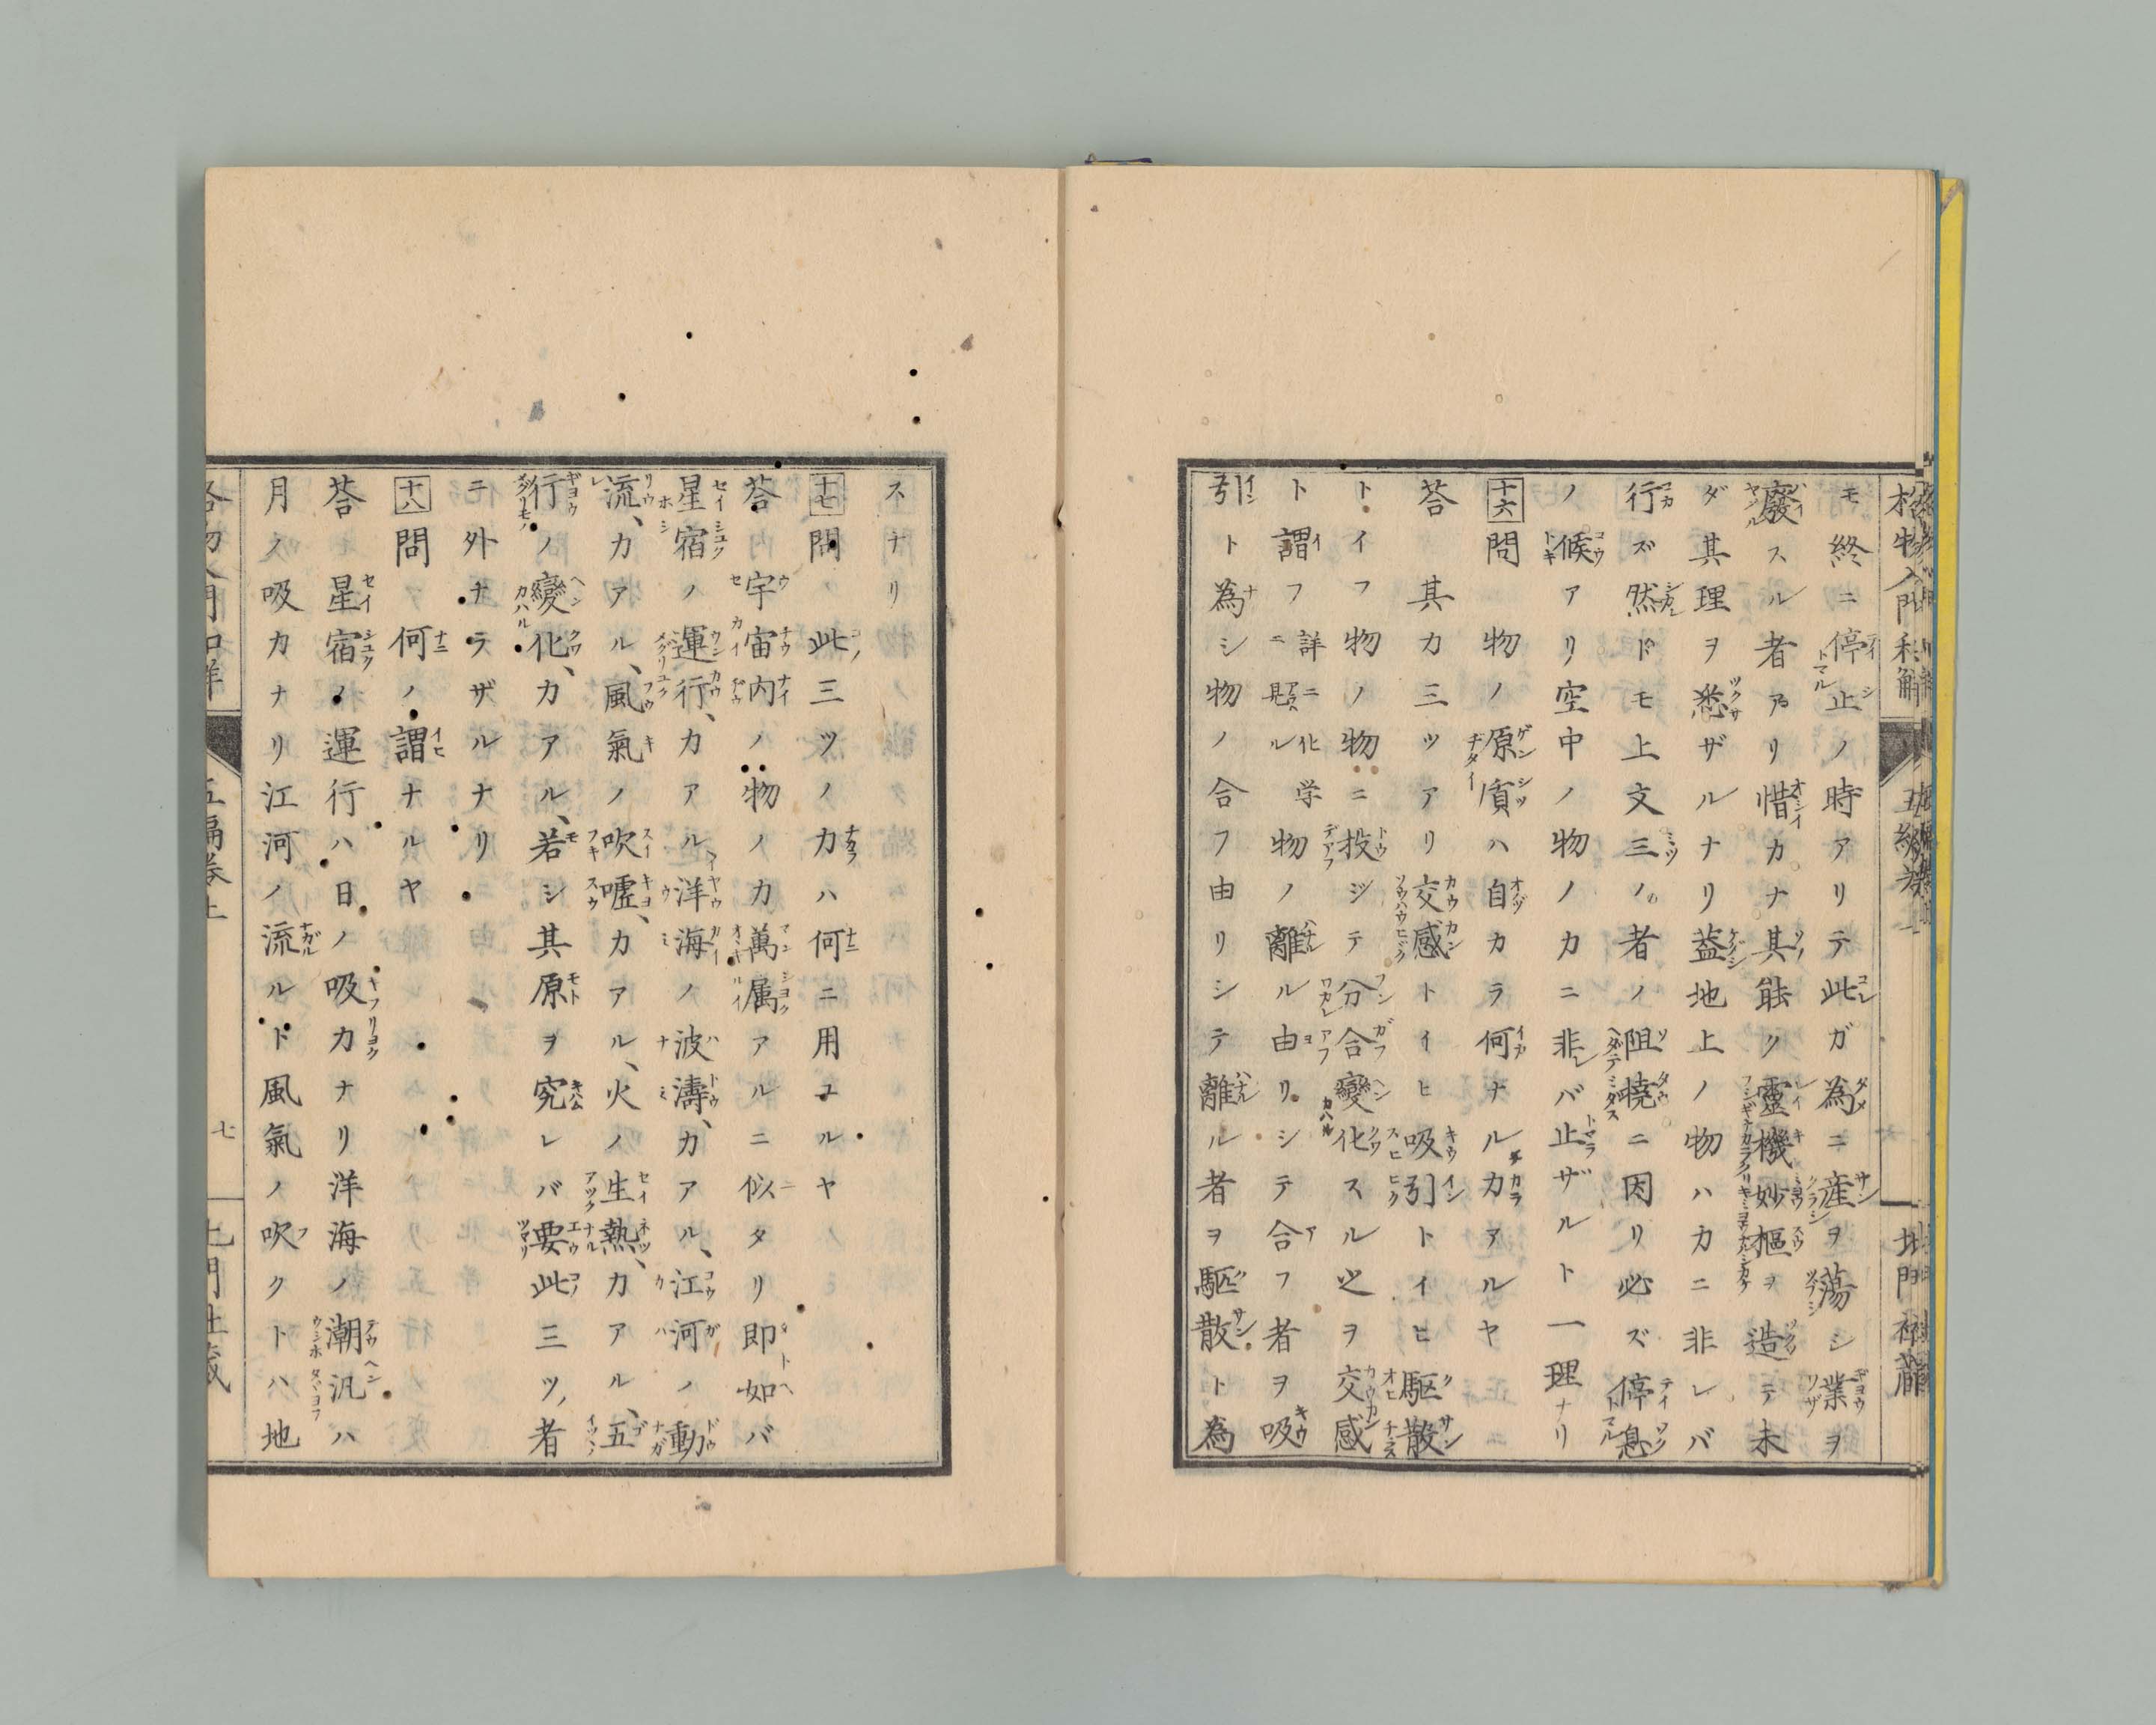 格物入門和解
モ終ニ停止ノ時アリテ此ガ為ニ産ヲ蕩シ業ヲ
廢スル者アリ惜カナ其能ク靈機妙樞ヲ造テ未
ダ其理ヲ悉ザルナリ葢地上ノ物ハ力ニ非レバ
行ズ然ドモ上文三ノ者ノ阻撓ニ因リ必ズ停息
ノ候アリ空中ノ物ノ力ニ非レバ止ザルト一理ナリ
十六 問 物ノ原質ハ自カラ何ナル力アルヤ
荅 其力三ツアリ交感トイヒ吸引トイヒ駆散
トイフ物ノ物ニ投ジテ分合變化スル之ヲ交感
ト謂フ詳ニ化学ニ見ル物ノ離ル由リシテ合フ者ヲ吸
引ト為シ物ノ合フ由リシテ離ル者ヲ駆散ト為
スナリ
十七 問 此三ツノ力ハ何ニ用ユルヤ
荅 宇宙内ノ物ノ力萬属アルニ似タリ即如バ
星宿ノ運行、力アル洋海ノ波濤、力アル、江河ノ動
流、力アル、風氣ノ吹嘘、力アル、火ノ生熱、力アル、五
行ノ變化、力アル、若シ其原ヲ究レバ要此三ツノ者
ニ外ナラザルナリ
十八 問 何ノ謂ナルヤ
荅 星宿ノ運行ハ日ノ吸力ナリ洋海ノ潮汎ハ
月ノ吸力ナリ江河ノ流ルト風氣ノ吹クトハ地
格物入門和解
五編巻上
七
北門社蔵